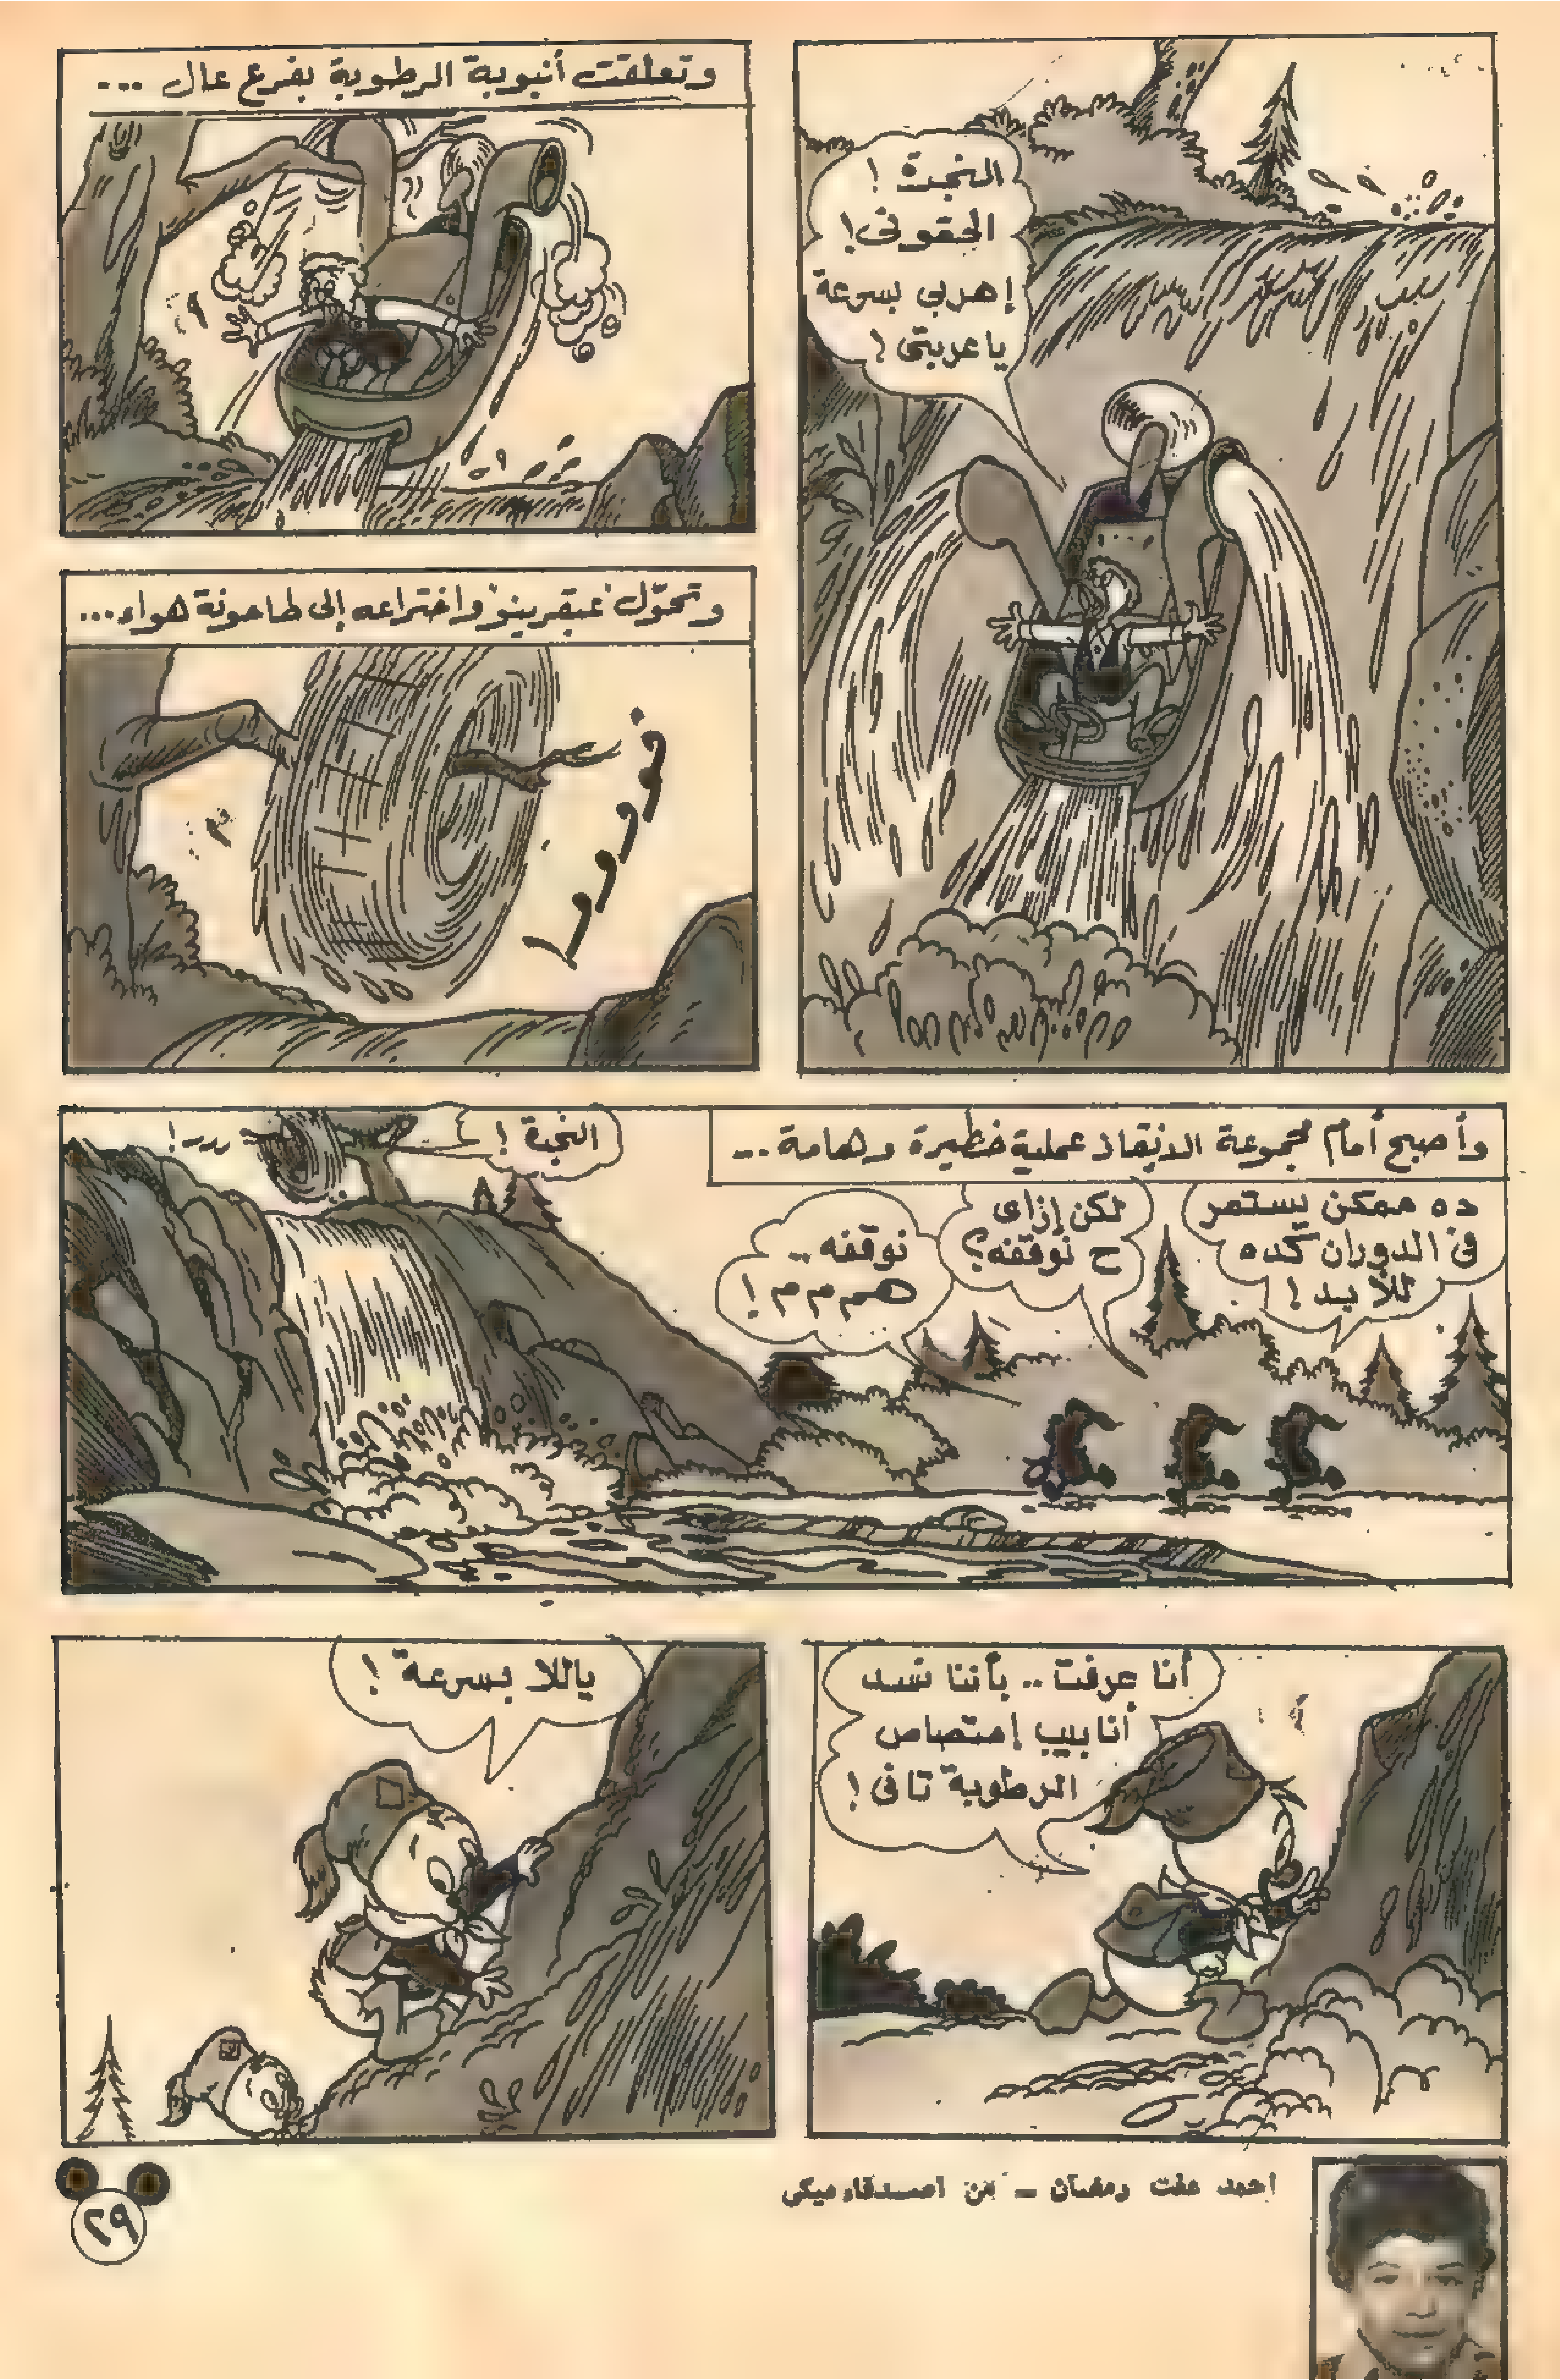 النجدة !
الحقونى !
إهربى بسرعة
ياعربيتى !
وتعلقت أنبوبة الرطوبة بفرع عال ...
وتحوّل "عبقرينو" واختراعه إلى طاحونة هواء ...
وأصبح أمام مجموعة الانقاذ عملية خطيرة وهامة ...
ده ممكن يستمر
فى الدوران كده
للأبد !
لكن إزاى
ح نوقفه ؟
نوقفه ..
هم م م !
النجدة !
أنا عرفت .. بأننا نسد
أنابيب إمتصاص
الرطوبة تانى !
ياللا بسرعة !
احمد عفت رمضان - من اصدقاء ميكى
٢٩